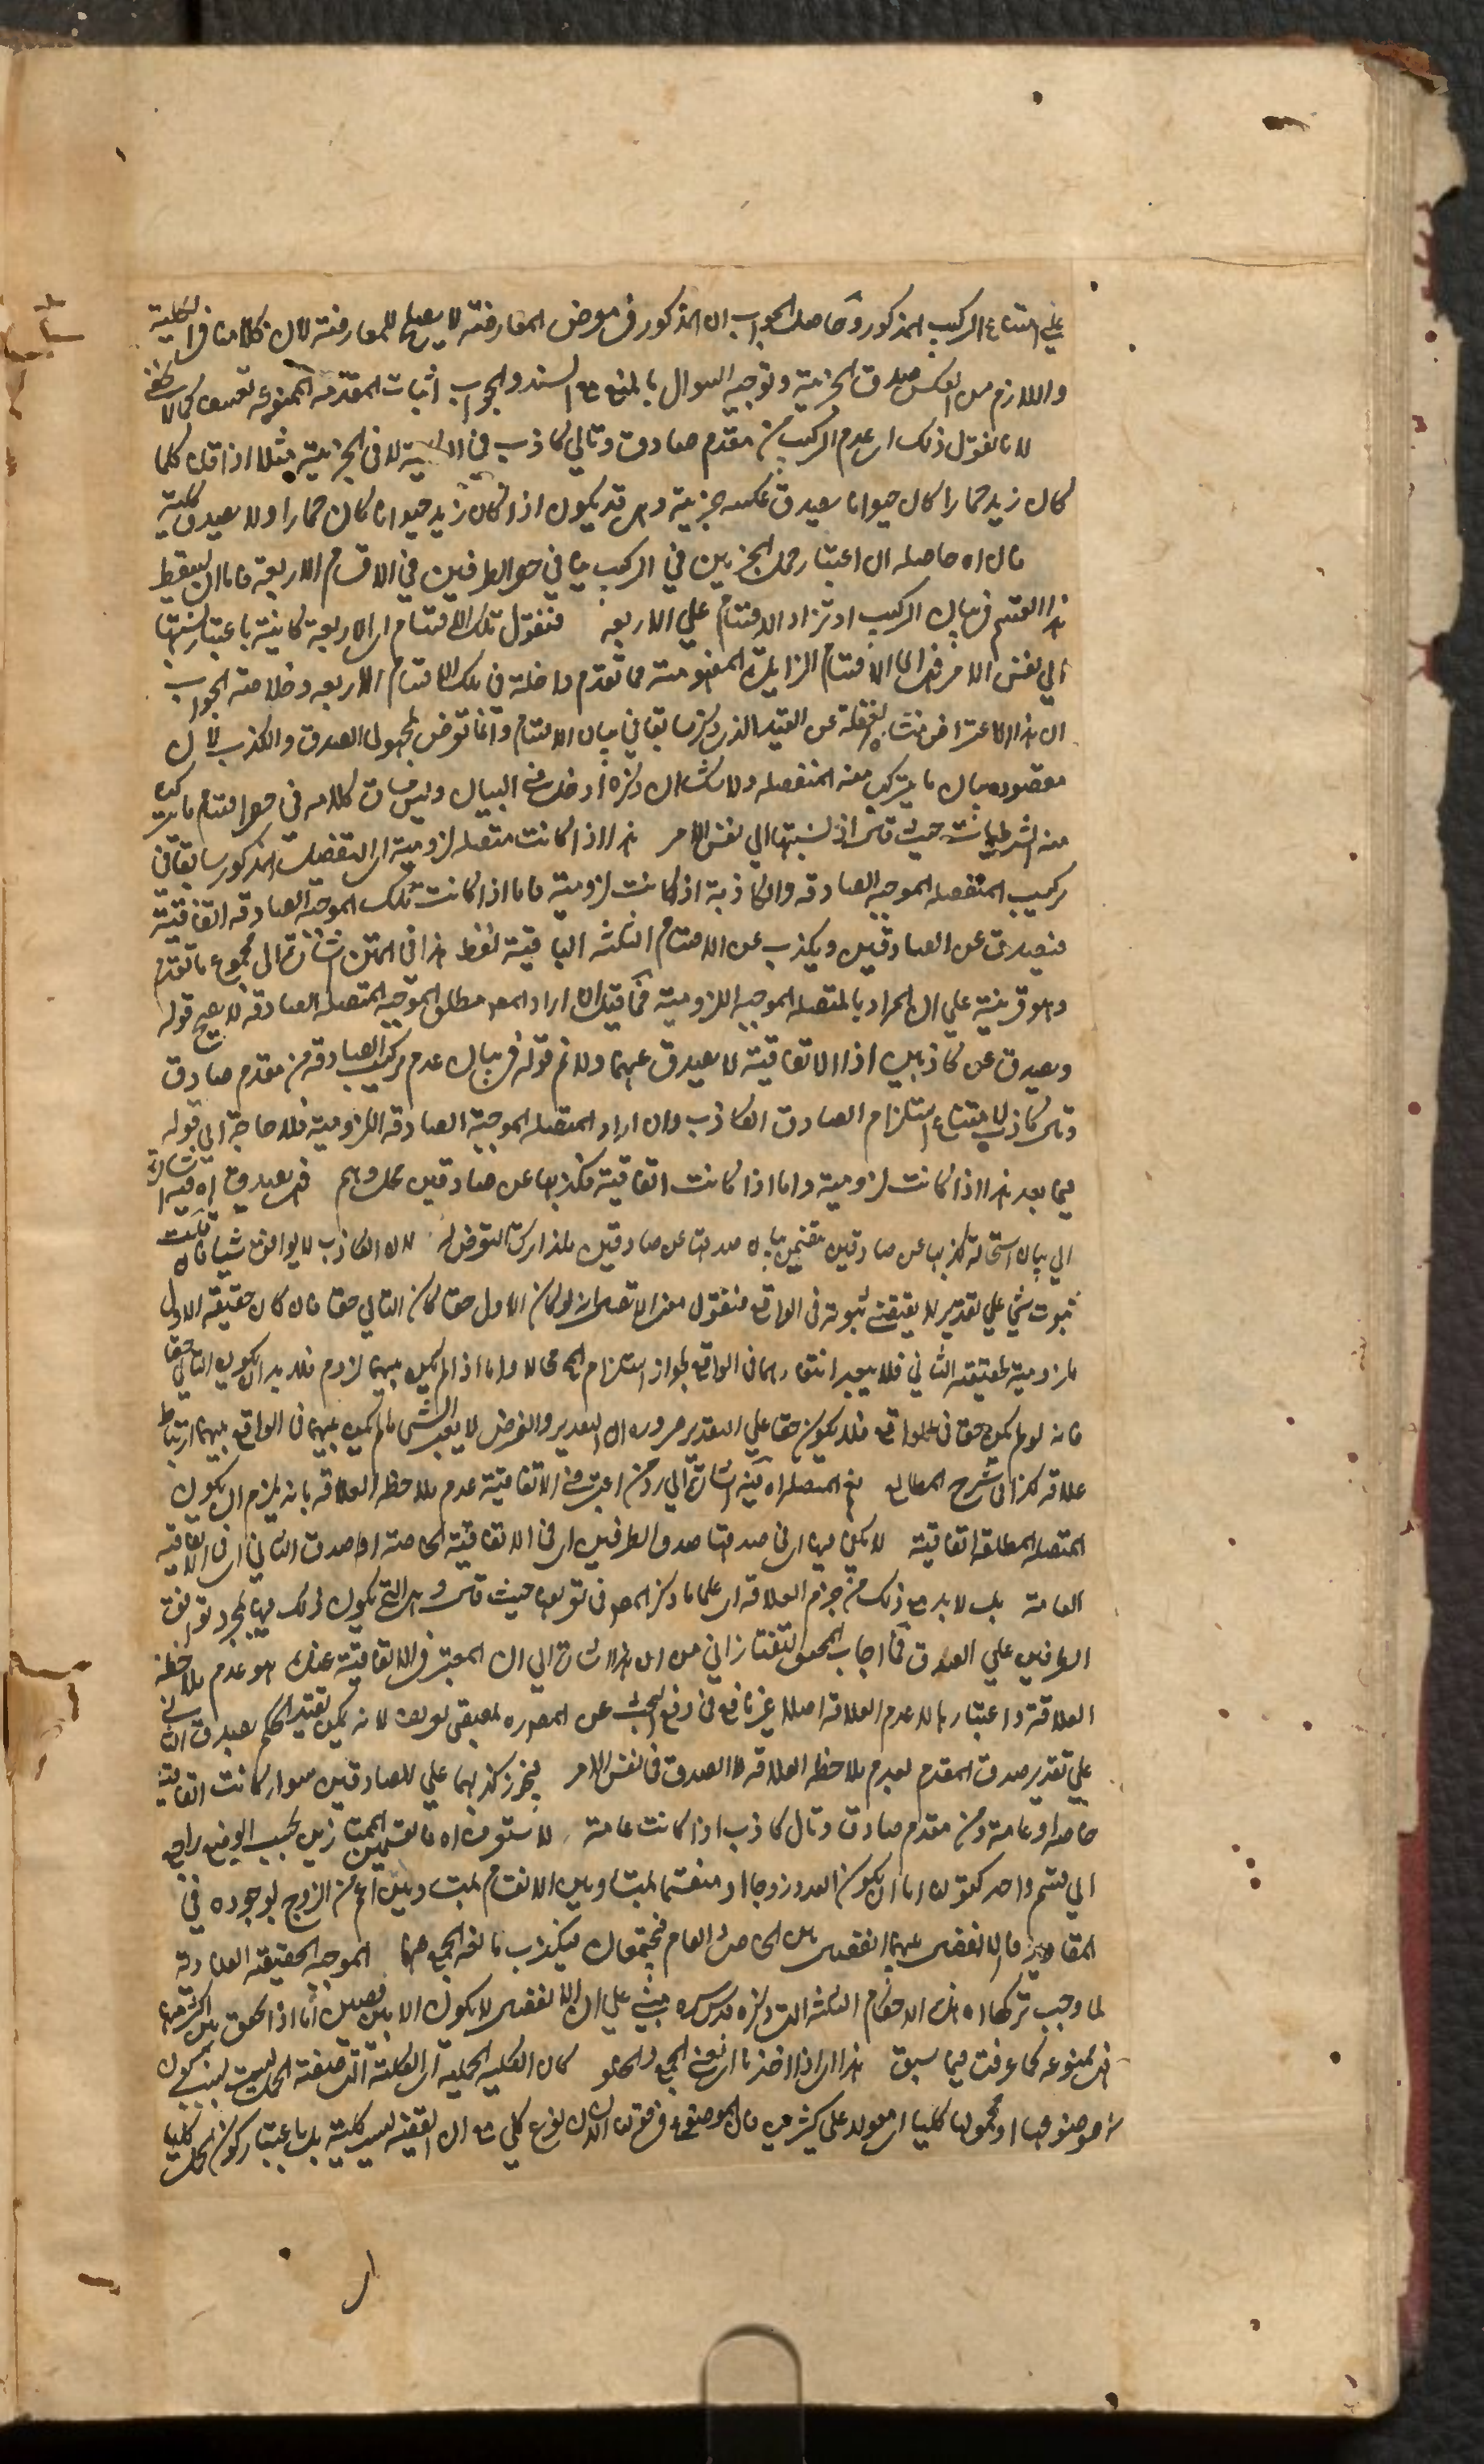 علي امتناع الركيب المذكور وحاصل الجواب ان المذكور في معرض المعارضة لا يصلح للمعارضة لان كلامنا في الكلية
واللازم من العكس صدق الجزئية وتوجيه السوال بالمنع مع السند والجواب اثبات المقدمة الممنوعة تعسف كما لا يخفى
لانا نقول ذلك اي عدم الركيب من مقدم صادق وتالي كاذب في الكلية لا في الجزئية مثلا اذا قلنا كلما
كان زيد حمارا كان حيوانا يصدق عكسه جزئية وهي قد يكون اذا كان زيد حيوانا كان حمارا ولا يصدق كلية
قال اه حاصله ان اعتبار جهل الجزئين في الركيب ينافي حصر الطرفين في الاقسام الاربعة فاما ان يسقط
هذا القسم في بيان الركيب او تزاد الاقسام علي الاربعة فنقول تلك الاقسام اي الاربعة كائنة باعتبار نسبتها
الي نفس الامر فتلك الاقسام الزايدة المفهومة مما تقدم داخلة في تلك الاقسام الاربعة وخلاصة الجواب
ان هذا الاعتراض منشاه الغفلة عن القيد الذي ذكر سابقا في بيان الاقسام وانما تعرض لمجهولي الصدق والكذب لان
مقصوده بيان ما يتركب منه المنفصله ولا شك ان ذكره ادخل في البيان وليس كلامه في حصر اقسام ما يتركب
منه الشرطيات حيث قال اذ نسبتها الي نفس الامر هذا اذا كانت متصله لزومية اي التفصيل المذكور سابقا في
تركيب المتصله الموجبه الصادقه والكاذبة اذا كانت لزومية فاما اذا كانت تلك الموجبة الصادقه اتفاقية
فيصدق عن الصادقين ويكذب عن الاقسام الثلثه الباقية لفظ هذا في المتن اشارة الي مجموع ما تقدم
وهو قرينة علي ان المراد بالمتصله الموجبه اللزومية فما قيل ان اراد المصـ مطلق الموجبه المتصله الصادقه لا يصح قوله
ويصدق عن كاذبين اذ الاتفاقية لا يصدق عنهما ولا تم قوله في بيان عدم تركيب الصادقه من مقدم صادق
وتالي كاذب لامتناع استلزام الصادق الكاذب وان اراد المتصله الموجبة الصادقه اللزومية فلا حاجة الي قوله
فيما بعد هذا اذا كانت لزومية واما اذا كانت اتفاقية فكذبها عن صادقين محال وهم فهي يصدق اه فيه اشارة
الي بيان استحالة كذبها عن صادقين صدقها عن صادقين فلذا ترك التعرض له لان الكاذب لا يوافق شيئا فان قلت
ثبوت شي علي تقدير لا يقتضي ثبوته في الواقع فنقول معني الاتصال انه لو كان الاول حقا كان التالي حقا فان كان حقيقة الاول
ملزومية لحقيقة الثاني فلا يجب انتفاءهما في الواقع لجواز استلزام المحال محالا واما اذا لم يكن بينهما لزوم فلا بد ان يكون التالي حقا
فانه لو لم يكن حقا في الواقع فلا يكون حقا علي التقدير ضرورة ان التقدير والفرض لا يغير الشي ما لم يكن بينهما في الواقع بينهما ارتباط
علاقه كذا في شرح المطالع نعم المتصله اه فيه اشارة الي رد من اعتبر في الاتفاقية عدم ملاحظة العلاقه بانه يلزم ان يكون
المتصله المطلقه اتفاقية لا يكفي فيها اي في صدقها صدق الطرفين اي في الاتفاقية الخاصة او صدق التالي اي في الاتفاقيه
العامة بل لا بد مع ذلك من جزم العلاقه اي علي ما ذكر المصـ في تعريفه حيث قال وهي التي يكون ذلك فيها لمجرد توافق
الطرفين علي الصدق فما اجاب المحقق التفتازاني من ان هذا اشارة الي ان المعتبر في الاتفاقية عندك هو عدم ملاحظة
العلاقة واعتبارها لا عدم العلاقه اصلا غير نافع في دفع البحث عن المصـ لانه يمكن تفسير الحكم بصدق التالي
علي تقدير صدق المقدم لعدم ملاحظة العلاقه لا الصدق في نفس الامر فيجوز كذبهما علي الصادقين سواء كانت اتفاقية
خاصه او عامة ومن مقدم صادق وتال كاذب اذا كانت عامة لا ستعرف اه فالقسمين المتمايزين بحسب الوضع راجع
الي قسم واحد كقولنا اما ان يكون العدد زوجا او منقسما بمتساويين الانقسام بمتساويين اعم من الزوج لوجوده في
المقادير فالانفصال عنهما انفصال بين الخاص والعام فيجتمعان فيكذب مانعة الجمع عنهما الموجبه الحقيقة الصادقة
لما وجب تركبها اه هذه الاحكام الثلثه التي ذكره قدس سره مبني علي ان الانفصال لا يكون الا بين نقيضين اما اذا تحقق بين اكثر من
فهي ممنوعه كما عرفت فيما سبق هذا اي اذا اخذنا مانعتي الجمع والخلو كان الكليه الحمليه اي الكليه التي صفة الحمليه ليست يكون
موضوعها او محمولها كليا اي مقولا علي كثيرين فان الموضوع في قولنا الانسان نوع كلي مع ان القضية ليست كلية بل باعتبار كون الحكم كليا